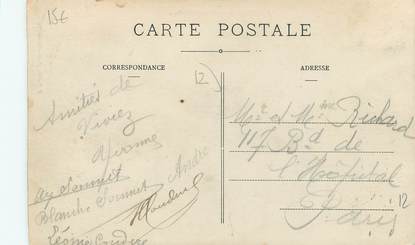 15€
CARTE POSTALE
CORRESPONDANCE
ADRESSE
12
Amitiés de
Viviez
Blanche Sommet André
Léonie
Mr et Mme Richard
117 Bd de
l'Hôpital
Paris 12